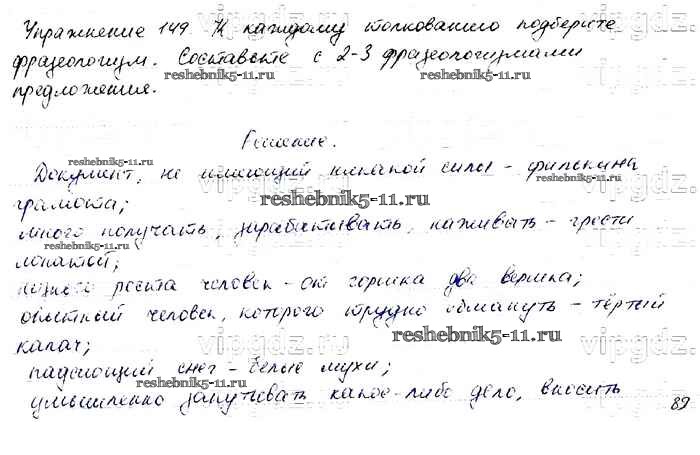 Упражнение 149. К каждому толкованию подберите
фразеологизм. Составьте с 2-3 фразеологизмами
reshebnik5-11.ru
предложения.
reshebnik5-11.ru
Решение.
reshebnik5-11.ru
Документ, не имеющий никакой силы - филькина
vipgdz.ru
reshebnik5-11.ru
грамота;
много получать, зарабатывать, наживать - грести
reshebnik5-11.ru
лопатой;
низкого роста человек - от горшка два вершка;
опытный человек, которого трудно обмануть - тёртый
reshebnik5-11.ru
калач;
падающий снег - белые мухи;
reshebnik5-11.ru
умышленно запутывать какое-либо дело, вносить
89